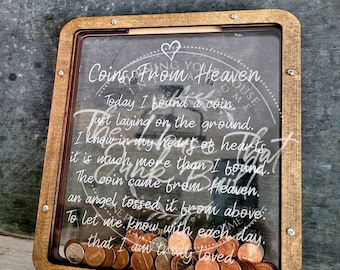 Coins From Heaven
Today I found a coin,
Just laying on the ground,
I know in my heart of hearts
it is much more than I found.
The coin came from Heaven,
an angel tossed it from above.
To let me know with each day,
that I am truly loved
The House That